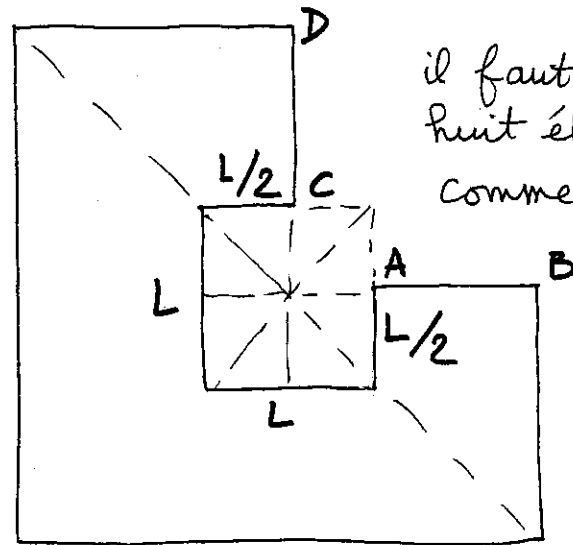 D
il faut
huit
comme
L/2 C
A B
L L/2
L